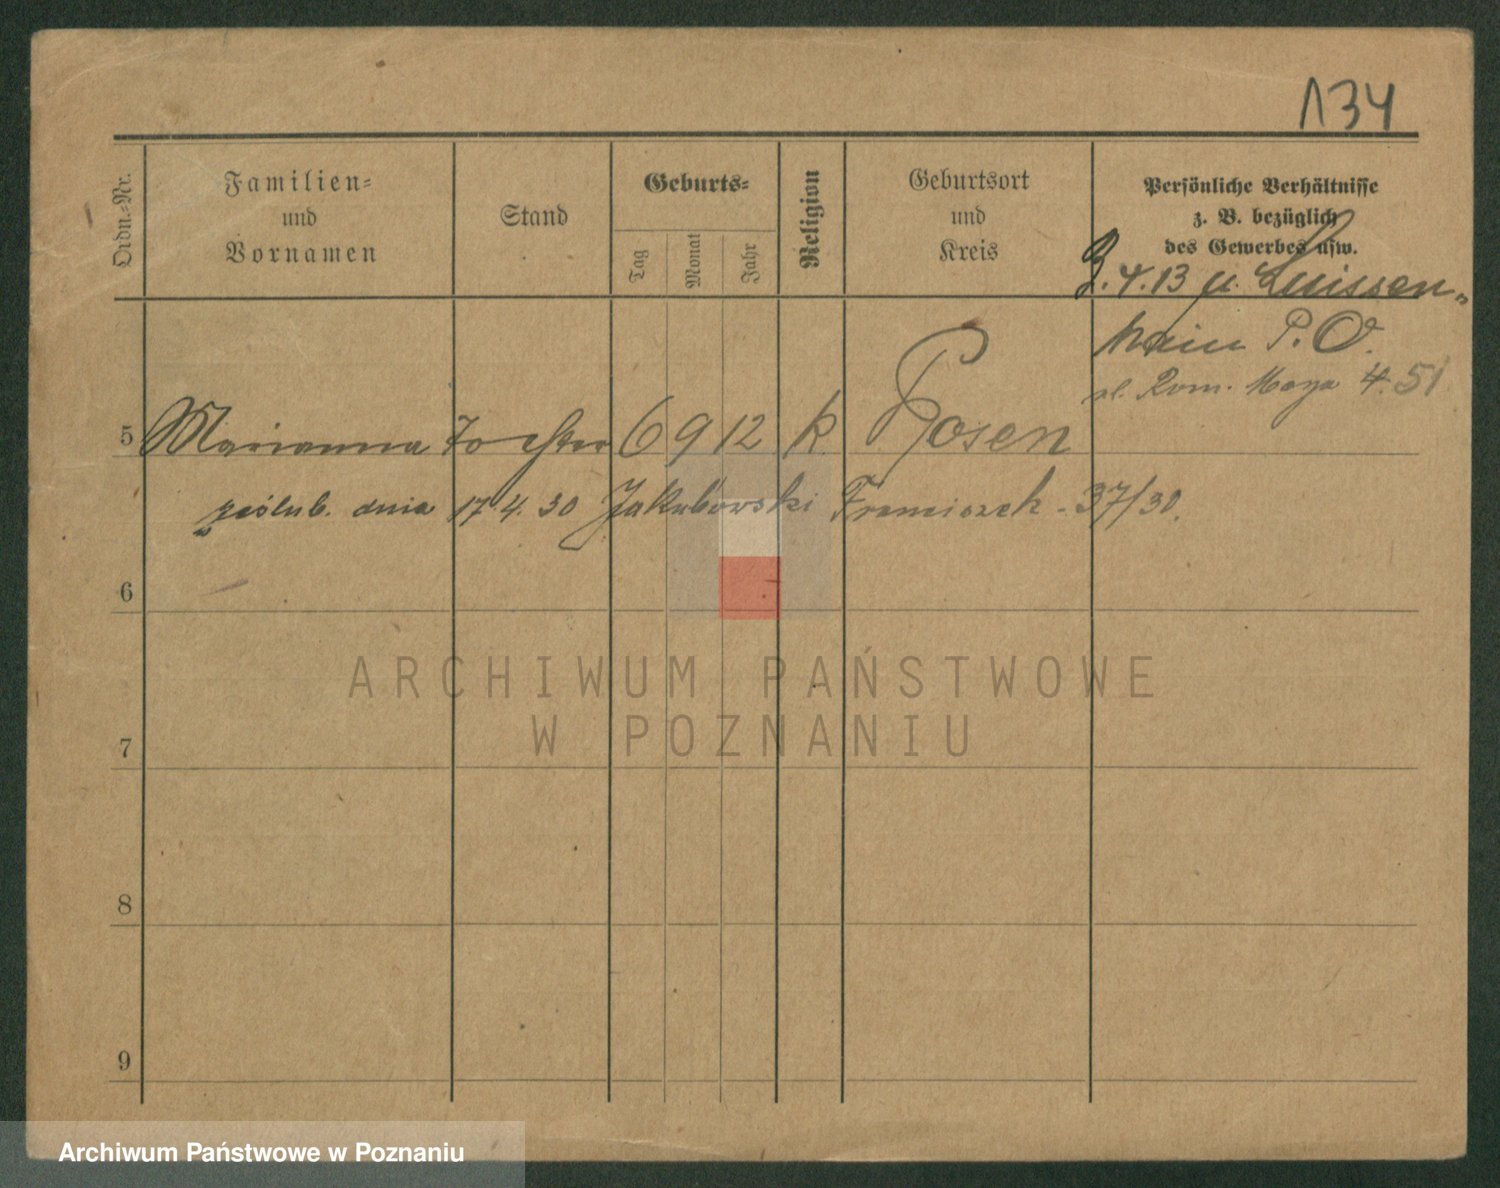 134
Ordn.-Nr.
Familien-
und
Vornamen
Stand
Geburts-
Tag
Monat
Jahr
Religion
Geburtsort
und
Kreis
Persönliche Verhältnisse
z. B. bezüglich
des Gewerbes usw.
3.4.13 u. Luissen-
hain P.O.
4.51
5 Marianna Tochter 6 9 12 k. Posen
poślub. dnia 17 4. 30 Jakubowski Franciszek - 37/30.
6
7
8
9
ARCHIWUM PAŃSTWOWE
W POZNANIU
Archiwum Państwowe w Poznaniu